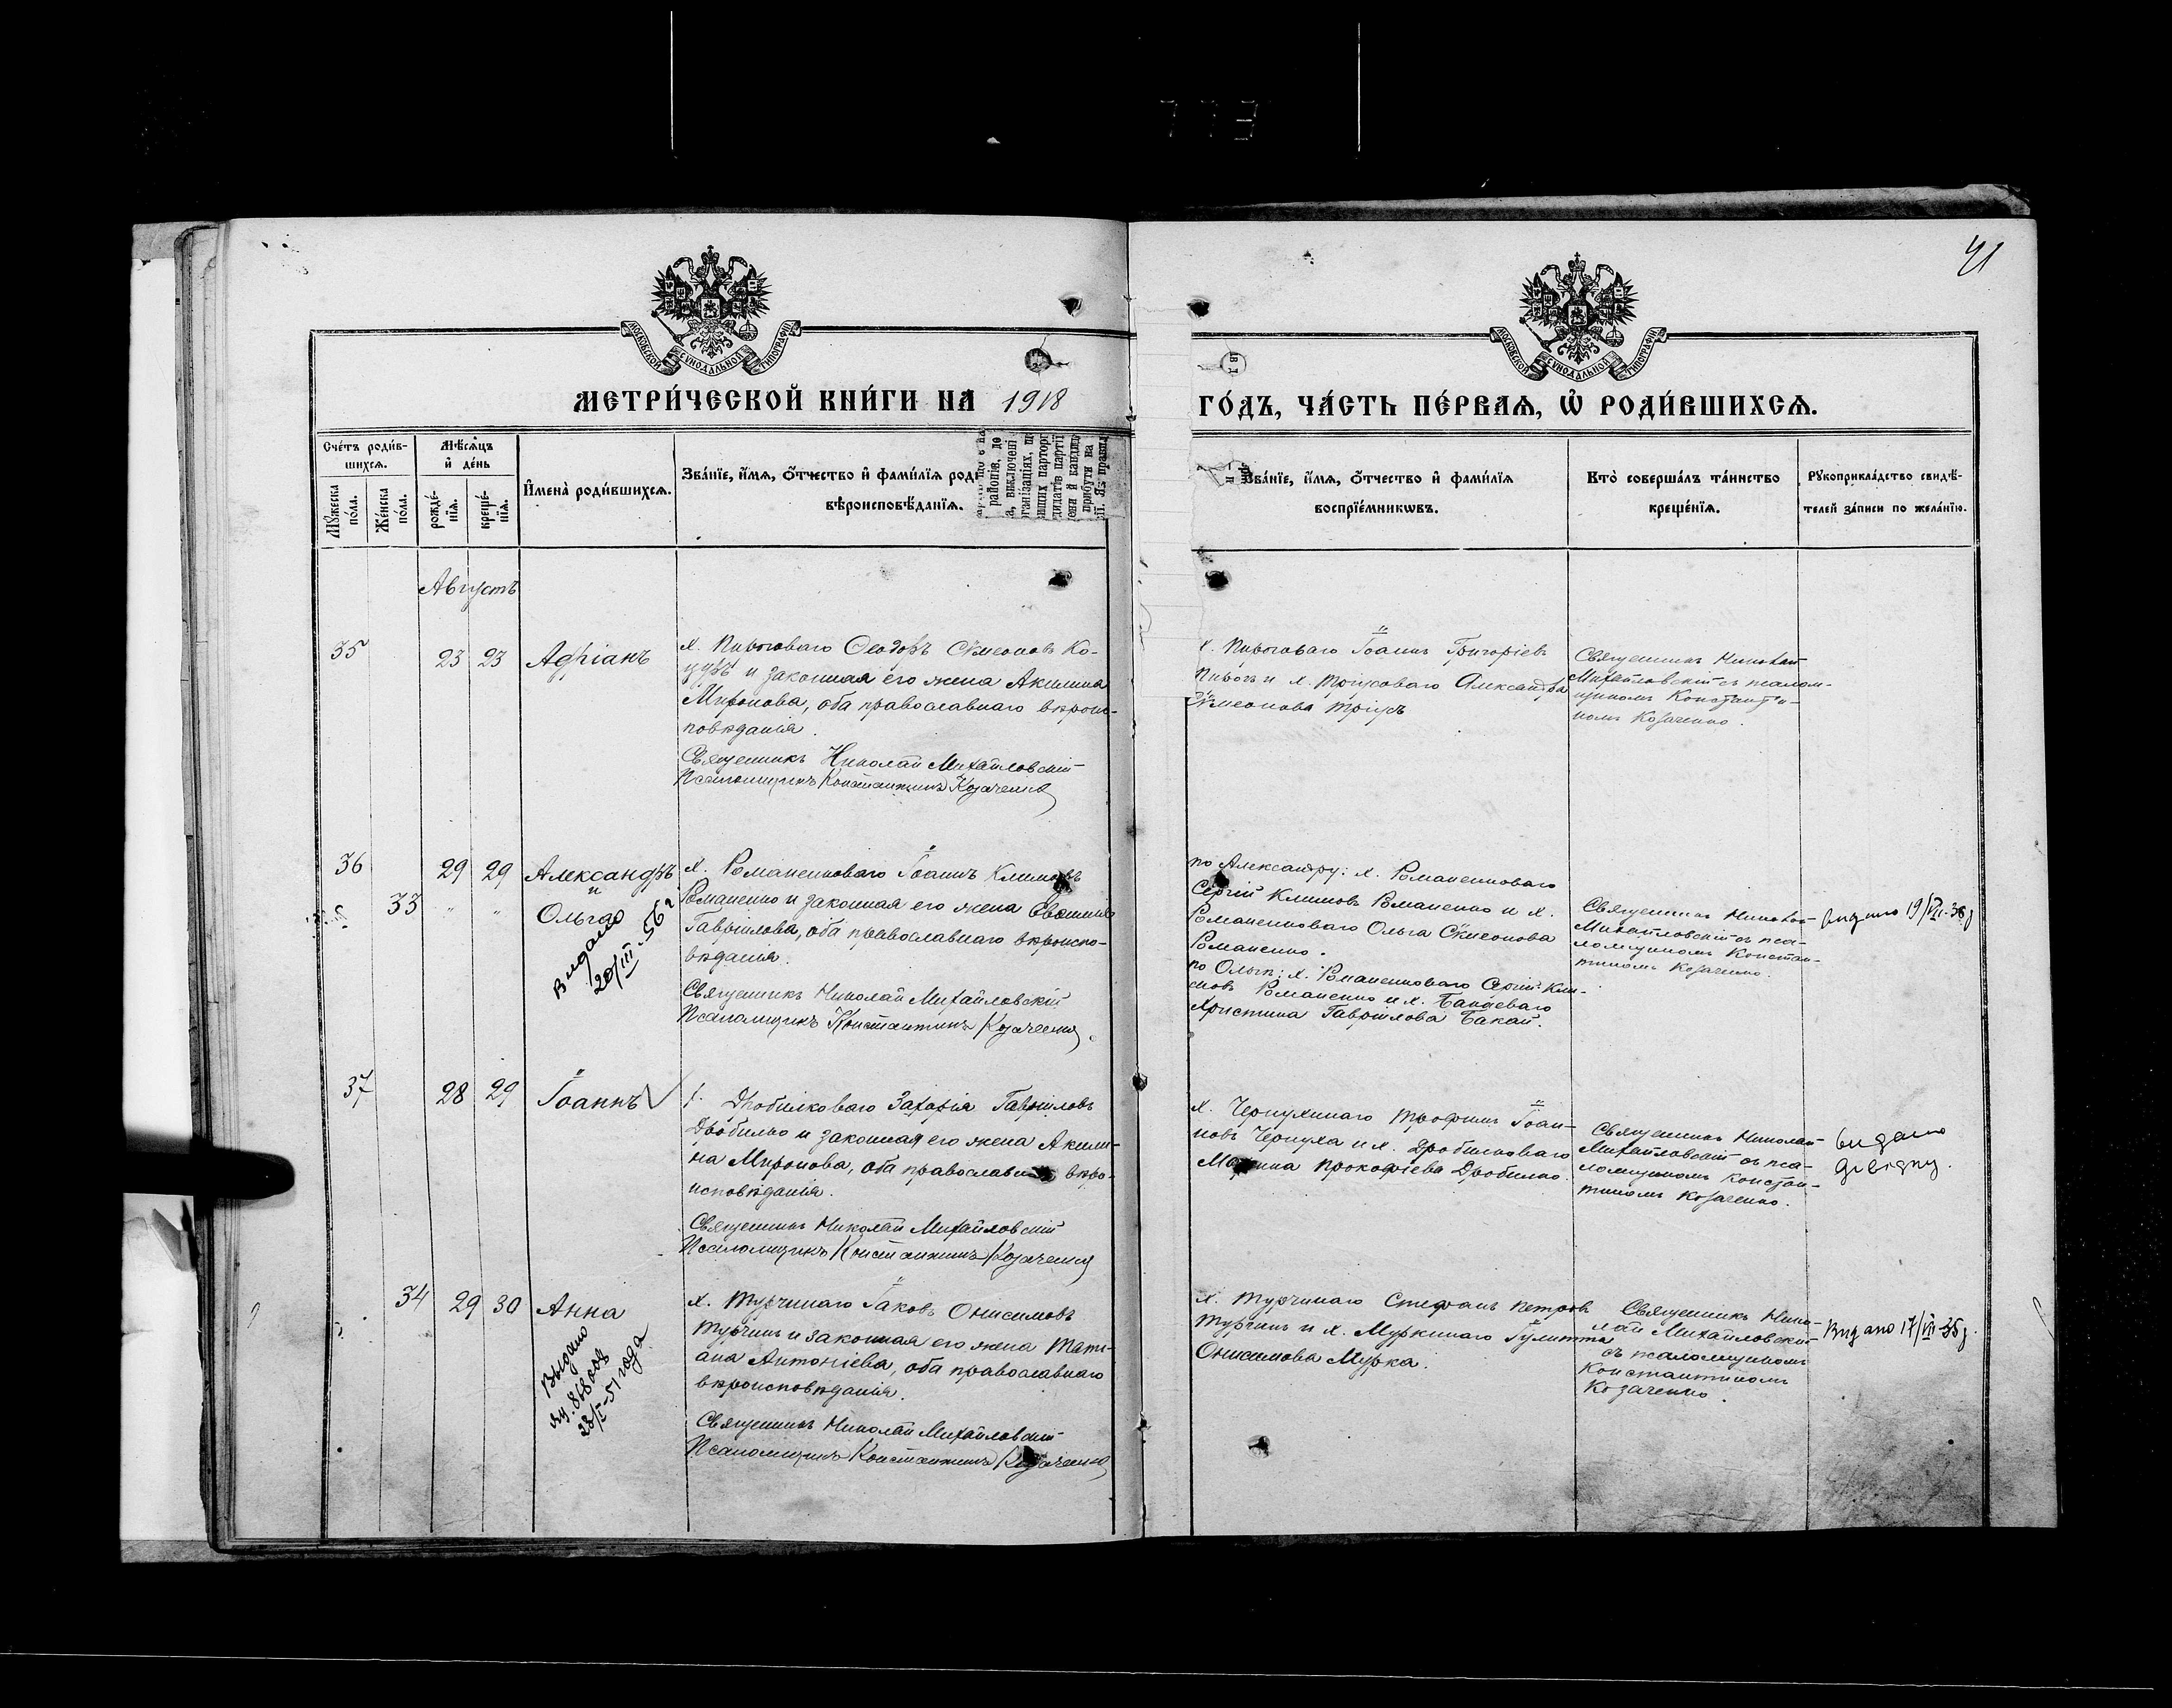 41
МОСКОВСКОЙ СУНОДАЛЬНОЙ ТИПОГРАФІИ
МОСКОВСКОЙ СУНОДАЛЬНОЙ ТИПОГРАФІИ
МЕТРИ́ЧЕСКОЙ КНИ́ГИ НА 1918
ГО́ДЪ, ЧА́СТЬ ПЕ́РВАѦ, Ѡ҆ РОДИ́ВШИХСѦ.
Сче́тъ роди́в-
шихсѧ.
Мѣ́сѧцъ
и҆ де́нь
Мꙋ́жеска по́ла.
Же́нска по́ла.
рожде́-
нїѧ.
креще́-
нїѧ.
И҆мена̀ роди́вшихсѧ.
Зва́нїе, и҆́мѧ, ѻ҆́тчество и҆ фами́лїѧ роди
вѣроисповѣ́данїѧ.
Зва́нїе, и҆́мѧ, ѻ҆́тчество и҆ фами́лїѧ
воспрїе́мникѡвъ.
Кто̀ соверша́лъ та́инство
креще́нїѧ.
Рꙋкоприкла́дство свидѣ́-
телей за́писи по жела́нїю.
Августъ
35
23 23
Адріанъ
х. Пироговаго Ѳеодоръ Сѵмеоновъ Ко-
цуръ и законная его жена Акилина
Миронова, оба православнаго вѣроис-
повѣданія.
Священникъ Николай Михайловскій
Псаломщикъ Константинъ Козаченко
х. Пироговаго Іоаннъ Григоріевъ
Пирогъ и х. Тріусоваго Александра
Сѵмеонова Тріусъ
Священникъ Николай
Михайловскій съ псалом-
щикомъ Константи-
номъ Козаченко.
36
29 29
Александръ
и
33
" "
Ольга
Видано
20/III-56 г
х. Романенковаго Іоаннъ Климовъ
Романенко и законная его жена Евѳимія
Гавріилова, оба православнаго вѣроиспо-
вѣданія.
Священникъ Николай Михайловскій
Псаломщикъ Константинъ Козаченко.
по Александру: х. Романенковаго
Сергій Климовъ Романенко и х.
Романенковаго Ольга Сѵмеонова
Романенко.
по Ольгѣ: х. Романенковаго Сергій Кли-
мовъ Романенко и х. Бакаеваго
Христина Гавріилова Бакай.
Священникъ Николай
Михайловскій съ пса-
ломщикомъ Констан-
тиномъ Козаченко.
видано 19/VII-38 р
37
28 29
Іоаннъ
х. Дробилковаго Захарія Гавріиловъ
Дробилко и законная его жена Акили-
на Миронова, оба православнаго вѣро-
исповѣданія.
Священникъ Николай Михайловскій
Псаломщикъ Константинъ Козаченко
х. Чернухинаго Трофимъ Іоан-
новъ Чернуха и х. Дробилковаго
Марина Прокофіева Дробилко.
Священникъ Николай
Михайловскій съ пса-
ломщикомъ Констан-
тиномъ Козаченко.
видано
довідку.
34
29 30
Анна
Выдано
яу. 868008
23/I-51 года
х. Турчинаго Іаковъ Онисимовъ
Турчинъ и законная его жена Тати-
ана Антоніева, оба православнаго
вѣроисповѣданія.
Священникъ Николай Михайловскій
Псаломщикъ Константинъ Козаченко
х. Турчинаго Стефанъ Петровъ
Турчинъ и х. Муркинаго Іулитта
Онисимова Мурка.
Священникъ Нико-
лай Михайловскій
съ псаломщикомъ
Константиномъ
Козаченко.
Видано 17/VII-35 р.